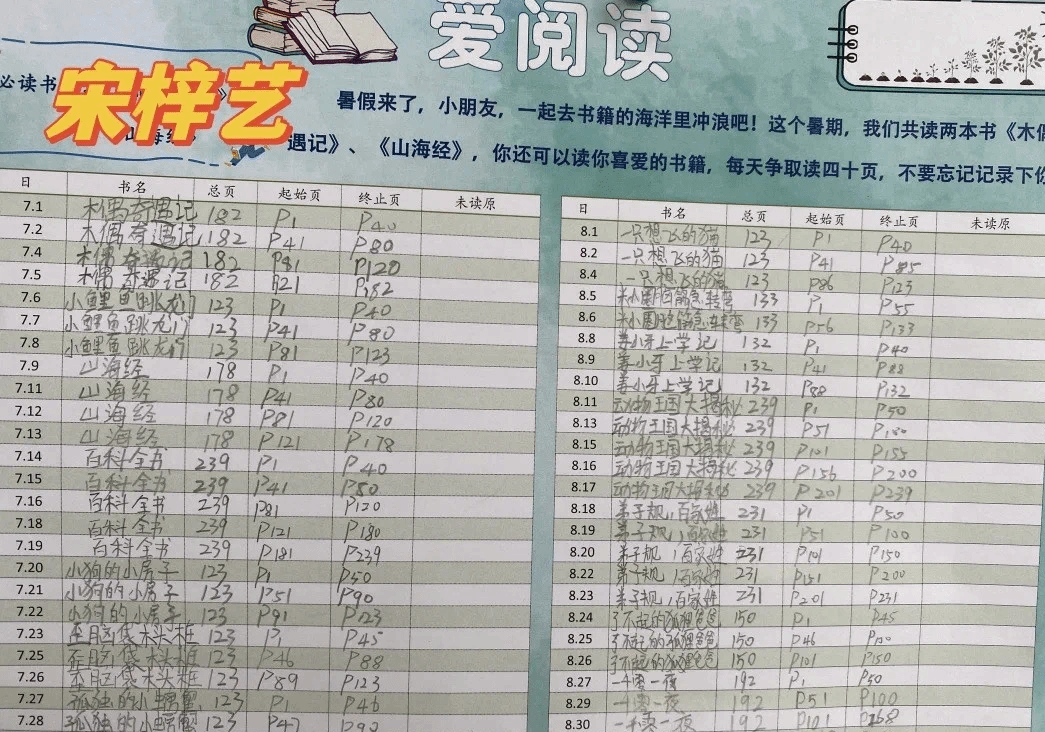 爱阅读
必读书
宋梓艺
暑假来了，小朋友，一起去书籍的海洋里冲浪吧！这个暑期，我们共读两本书《木偶
遇记》、《山海经》，你还可以读你喜爱的书籍，每天争取读四十页，不要忘记记录下你
日 书名 总页 起始页 终止页 未读原
7.1 木偶奇遇记 182 P1 P40
7.2 木偶奇遇记 182 P41 P80
7.4 木偶奇遇记 182 P81 P120
7.5 木偶奇遇记 182 P182
7.6 小鲤鱼跳龙门 123 P1 P40
7.7 小鲤鱼跳龙门 123 P41 P80
7.8 小鲤鱼跳龙门 123 P81 P123
7.9 山海经 178 P1 P40
7.11 山海经 178 P41 P80
7.12 山海经 178 P81 P120
7.13 山海经 178 P121 P178
7.14 百科全书 239 P1 P40
7.15 百科全书 239 P41
7.16 百科全书 239 P81 P120
7.18 百科全书 239 P121 P180
7.19 百科全书 239 P181 P239
7.20 小狗的小房子 123 P1 P50
7.21 小狗的小房子 123 P51 P90
7.22 小狗的小房子 123 P91 P123
7.23 歪脑袋木头桩 123 P1 P45
7.25 歪脑袋木头桩 123 P46 P88
7.26 歪脑袋木头桩 123 P89 P123
7.27 孤独的小螃蟹 123 P1 P46
7.28 孤独的小螃蟹 123 P47 P90
日 书名 总页 起始页 终止页 未读原
8.1 一只想飞的猫 123 P1 P40
8.2 一只想飞的猫 123 P41 P85
8.4 一只想飞的猫 123 P86 P123
8.5 133 P1 P55
8.6 133 P56 P133
8.8 姜小牙上学记 132 P1 P40
8.9 姜小牙上学记 132 P41 P88
8.10 姜小牙上学记 132 P88 P132
8.11 动物王国大揭秘 239 P1 P50
8.13 动物王国大揭秘 239 P51 P100
8.15 动物王国大揭秘 239 P101 P155
8.16 动物王国大揭秘 239 P156 P200
8.17 动物王国大揭秘 239 P201 P239
8.18 弟子规，百家姓 231 P1 P50
8.19 弟子规，百家姓 231 P51 P100
8.20 弟子规，百家姓 231 P101 P150
8.22 弟子规，百家姓 231 P151 P200
8.23 弟子规，百家姓 231 P201 P231
8.24 了不起的狐狸爸爸 150 P1 P45
8.25 了不起的狐狸爸爸 150 P46 P100
8.26 了不起的狐狸爸爸 150 P101 P150
8.27 一千零一夜 192 P1 P50
8.29 一千零一夜 192 P51 P100
8.30 一千零一夜 192 P101 P168